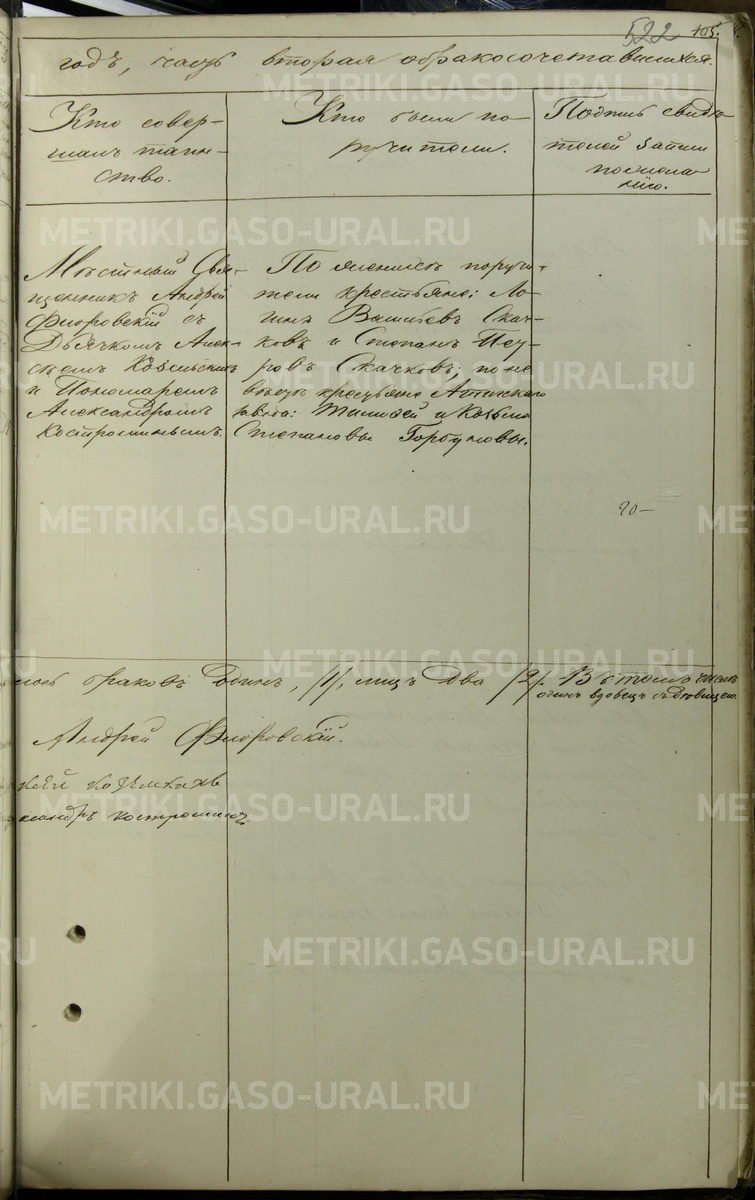 522 105.
годъ, часть вторая о бракосочетавшихся.
Кто совер-
шалъ таин-
ство.
Кто были по-
ручители.
Подпись свидѣ-
телей записи
по желa-
нію.
Мѣстный Свя-
щенникъ Андрей
Флоровскій съ
Дьячкомъ Алек-
сѣемъ
и Пономаремъ
Александромъ
Костроминымъ.
По женихѣ поручи-
тели крестьяне: Ло-
гинъ Васильевъ Скач-
ковъ и Степанъ Пет-
ровъ Скачковъ; по не-
вѣстѣ крестьяне
завода: Тимофей и Козьма
Степановы Горбуновы.
20—
лось браковъ Одинъ, /1/, лицъ Два /2/. Въ томъ числѣ
одинъ вдовецъ съ дѣвицею.
Андрей Флоровскій.
ксандръ Костроминъ.
METRIKI.GASO-URAL.RU